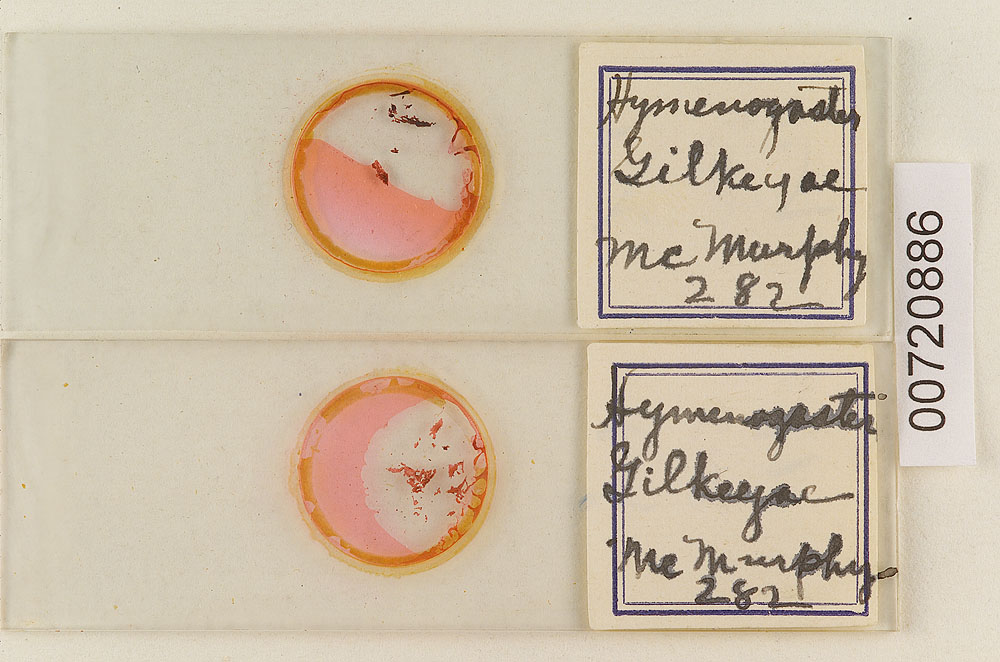 Hymenogaster
Gilkeyae
McMurphy
282
00720886
Hymenogaster
Gilkeyae
McMurphy
282